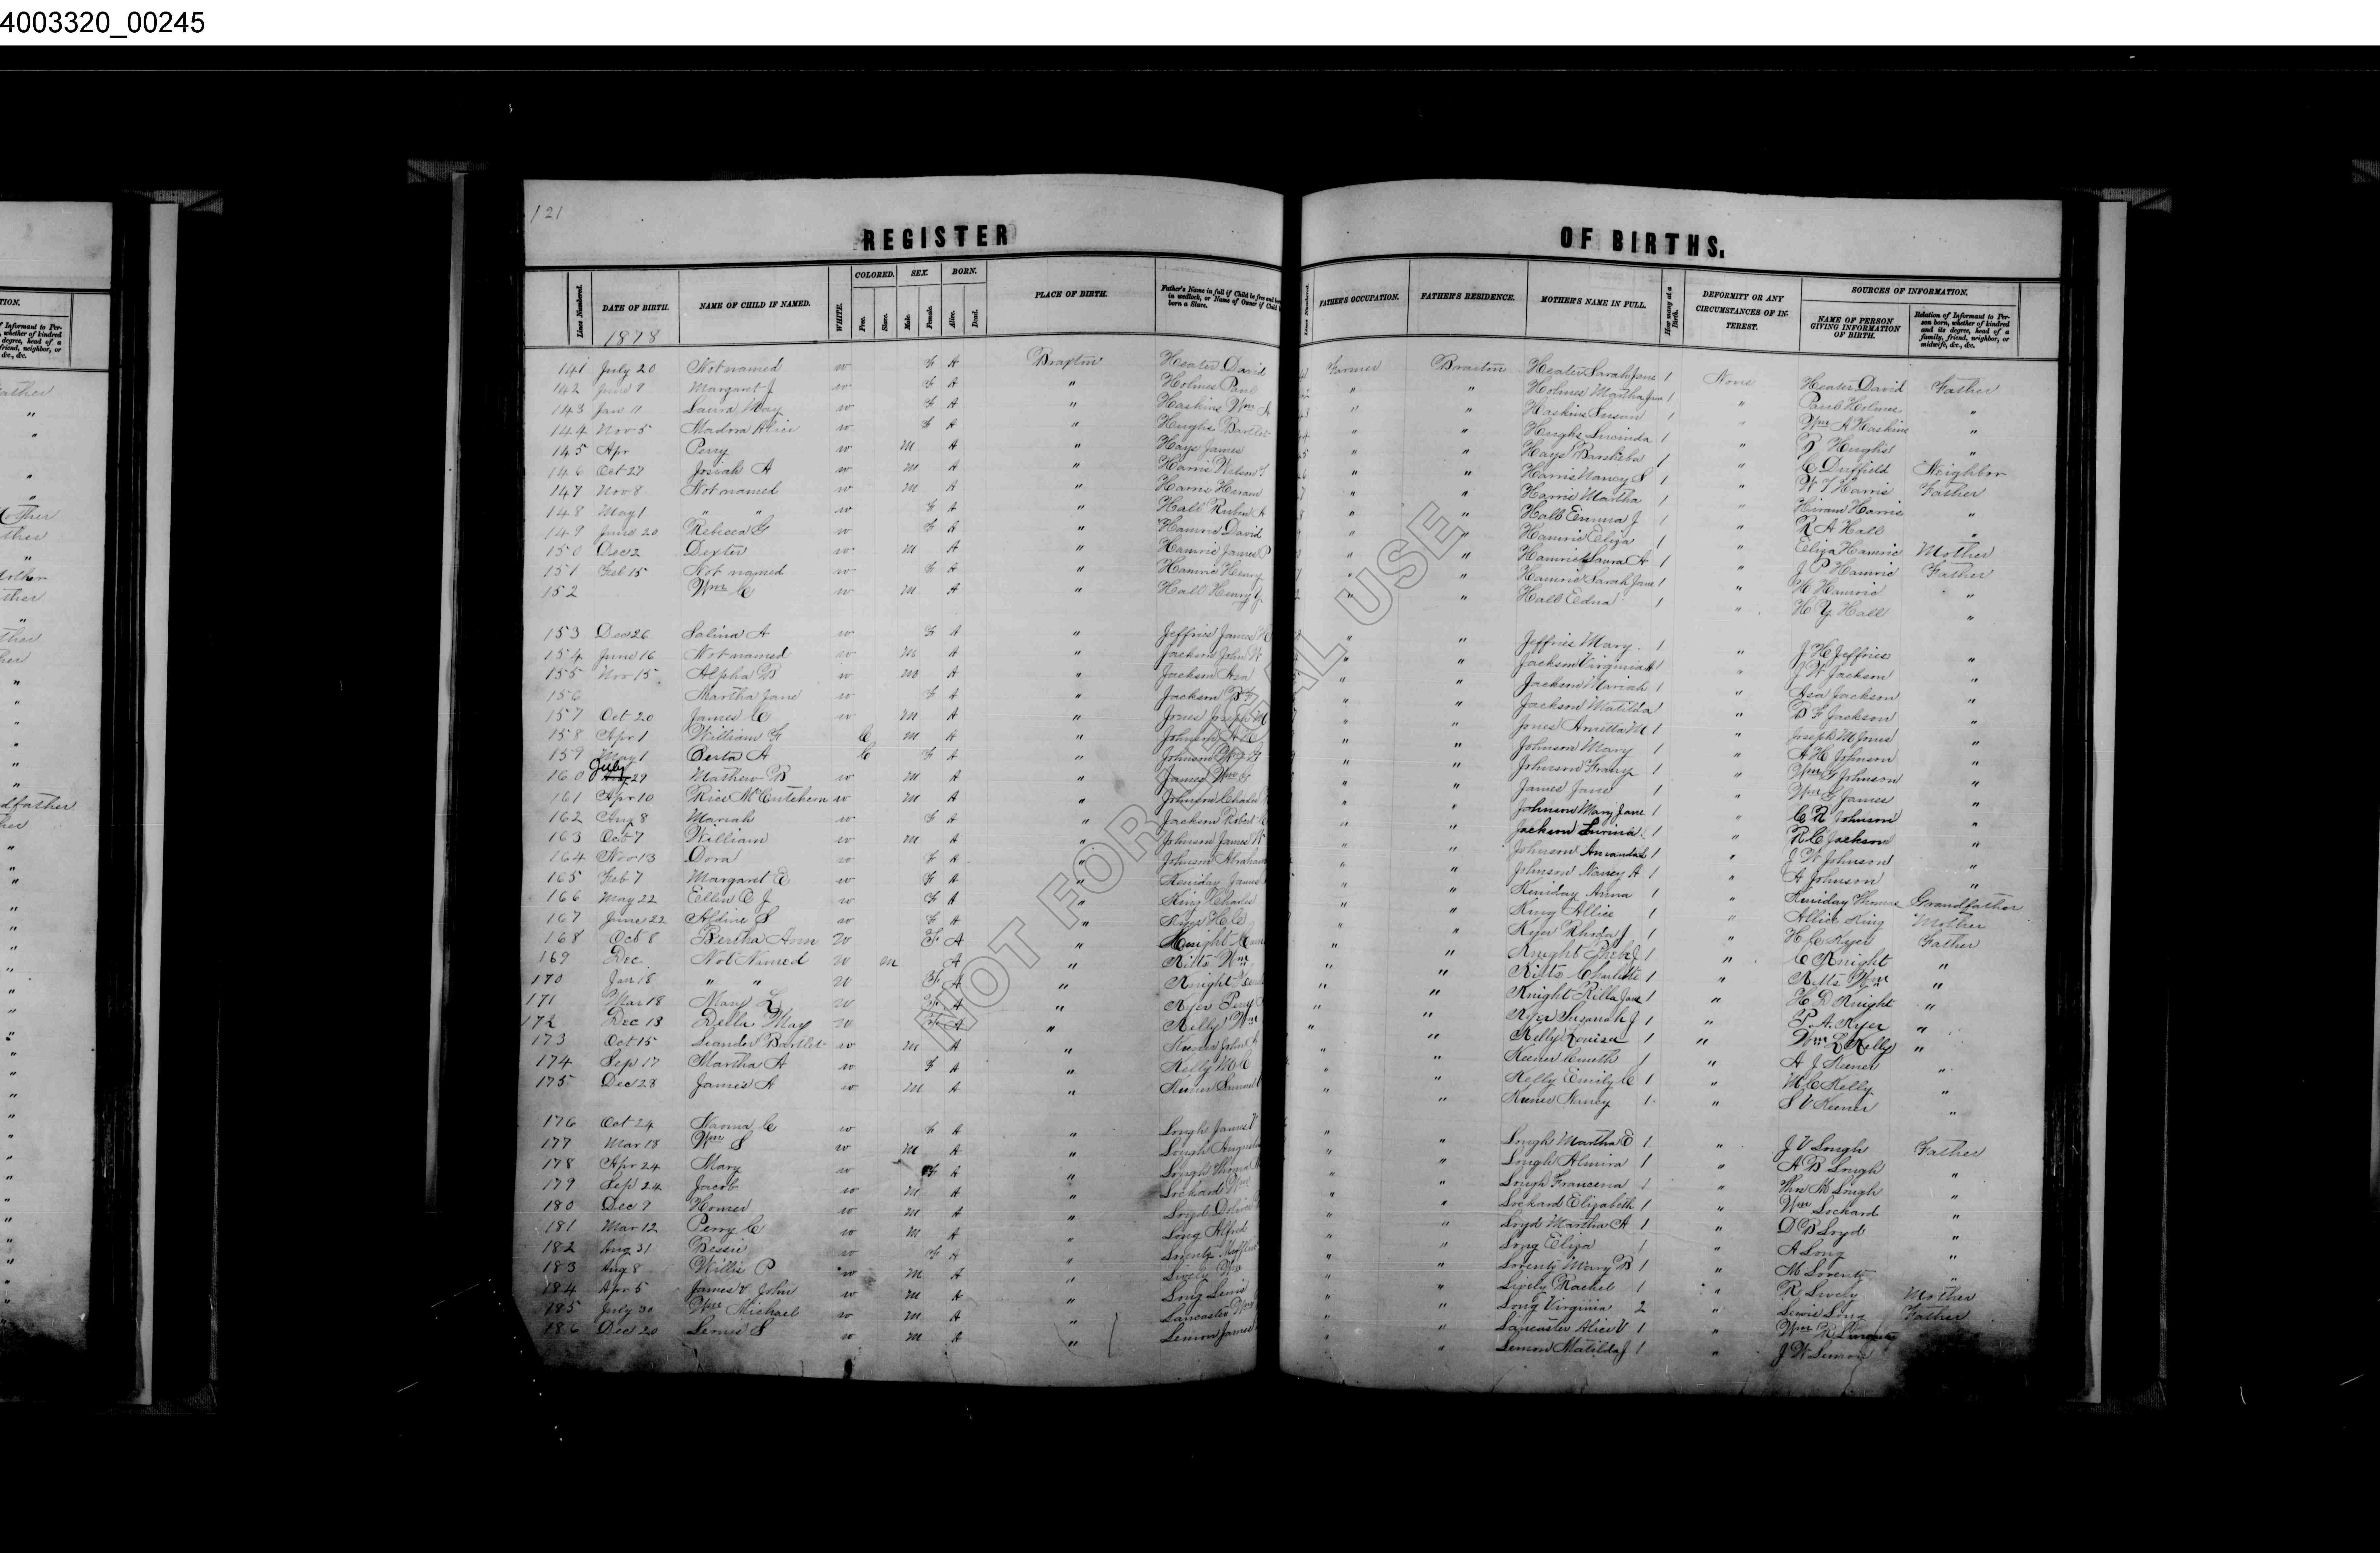 4003320_00245
121
REGISTER OF BIRTHS.
Lines Numbered. DATE OF BIRTH. NAME OF CHILD IF NAMED. WHITE. COLORED. Free. Slave. SEX. Male. Female. BORN. Alive. Dead. PLACE OF BIRTH. Father's Name in full if Child be free and born in wedlock, or Name of Owner if Child born a Slave. FATHER'S OCCUPATION. FATHER'S RESIDENCE. MOTHER'S NAME IN FULL. How many at a Birth. DEFORMITY OR ANY CIRCUMSTANCES OF INTEREST. SOURCES OF INFORMATION. NAME OF PERSON GIVING INFORMATION OF BIRTH. Relation of Informant to Person born, whether of kindred and its degree, head of a family, friend, neighbor, or midwife, &c., &c.
1878
141 July 20 Not named w F A Braxton Heater David Farmer Braxton Heater Sarah Jane 1 None Heater David Father
142 June 9 Margaret J w F A " Holmes Paul " " Holmes Martha Jane 1 " Paul Holmes "
143 Jan 11 Laura May w F A " Haskins Wm A " " Haskins Susan 1 " Wm A Haskins "
144 Nov 5 Madora Alice w F A " Hughs Bartlet " " Hughs Lucinda 1 " B Hughs "
145 Apr Perry w M A " Hays James " " Hays Barsheba 1 " C Duffield Neighbor
146 Oct 27 Josiah A w M A " Harris Nelson T " " Harris Nancy S 1 " N T Harris Father
147 Nov 8 Not named w M A " Harris Hiram " " Harris Martha 1 " Hiram Harris "
148 May 1 " " w F A " Hall Rubin A " " Hall Emma J 1 " R A Hall "
149 June 20 Rebecca G w F A " Hamric David " " Hamric Eliza 1 " Eliza Hamric Mother
150 Dec 2 Dexter w M A " Hamric James P " " Hamric Laura A 1 " J P Hamric Father
151 Feb 15 Not named w F A " Hamric Henry " " Hamric Sarah Jane 1 " H Hamric "
152 Wm C w M A " Hall Henry Y " " Hall Edna 1 " H Y Hall "
153 Dec 26 Salina A w F A " Jeffries James H " " Jeffries Mary 1 " J H Jeffries "
154 June 16 Not named w M A " Jackson John W " " Jackson Virginia A 1 " J W Jackson "
155 Nov 15 Alpha B w M A " Jackson Asa " " Jackson Mariah 1 " Asa Jackson "
156 Martha Jane w F A " Jackson B F " " Jackson Matilda 1 " B F Jackson "
157 Oct 20 James C w M A " Jones Joseph M " " Jones Amitta M 1 " Joseph M Jones "
158 Apr 1 William F C M A " Johnson A H " " Johnson Mary 1 " A H Johnson "
159 May 1 Berta A C F A " Johnson Wm G " " Johnson Frany 1 " Wm G Johnson "
160 July 29 Mathew B w M A " James Wm G " " James Jane 1 " Wm G James "
161 Apr 10 Rice McCutchem w M A " Johnson Charles " " Johnson Mary Jane 1 " C R Johnson "
162 Aug 8 Mariah w F A " Jackson Robert C " " Jackson Lurina 1 " R C Jackson "
163 Oct 7 William w M A " Johnson James W " " Johnson Amanda 1 " J W Johnson "
164 Nov 13 Dora w F A " Johnson Abraham " " Johnson Nancy A 1 " A Johnson "
165 Feb 7 Margaret E w F A " Keniday James " " Keniday Anna 1 " Keniday Thomas Grandfather
166 May 22 Ellen E J w F A " King Charles " " King Allice 1 " Allice King Mother
167 June 22 Aldine S w F A " Kyer H C " " Kyer Rhoda J 1 " H C Kyer Father
168 Oct 8 Bertha Ann W F A " Knight " " Knight Pheby J 1 " C Knight "
169 Dec Not Named W M A " Kitts Wm " " Kitts Charlotte 1 " Kitts Wm "
170 Jan 18 " " W F A " Knight " " Knight Rilla Jane 1 " H D Knight "
171 Mar 18 Mary L W F A " Kyer Perry " " Kyer Susanah J 1 " P. A. Kyer "
172 Dec 13 Della May W F A " Kelly Wm " " Kelly Louisa 1 " Wm L Kelly "
173 Oct 15 Leander Bartlet w M A " Keener John " " Keener 1 " A J Keener "
174 Sep 17 Martha A w F A " Kelly M C " " Kelly Emily C 1 " M C Kelly
175 Dec 28 James A w M A " Keener Samuel " " Keener Nancy 1 " S V Keener "
176 Oct 24 Naoma C w F A " Lough James V " " Lough Martha E 1 " J V Lough Father
177 Mar 18 Wm S w M A " Lough " " Lough Almira 1 " A B Lough "
178 Apr 24 Mary w F A " Lough Thomas M " " Lough Francena 1 " Thos M Lough "
179 Sep 24 Jacob w M A " Lockard Wm " " Lockard Elizabeth 1 " Wm Lockard "
180 Dec 9 Homer w M A " Loyd " " Loyd Martha A 1 " D B Loyd "
181 Mar 12 Perry C w M A " Long Alfred " " Long Eliza 1 " A Long "
182 Aug 31 Bessie w F A " Lorentz " " Lorentz Mary B 1 " M Lorentz "
183 Aug 8 Willis P w M A " Lively " " Lively Rachel 1 " R Lively Mother
184 Apr 5 James & John w M A " Long Lewis " " Long Virginia 2 " Lewis Long Father
185 July 30 Wm Michael w M A " Lancaster Wm " " Lancaster Alice V 1 " Wm R
186 Dec 20 Lewis S w M A " Lemon James " " Lemon Matilda J 1 " J W Lemon
NOT FOR LEGAL USE